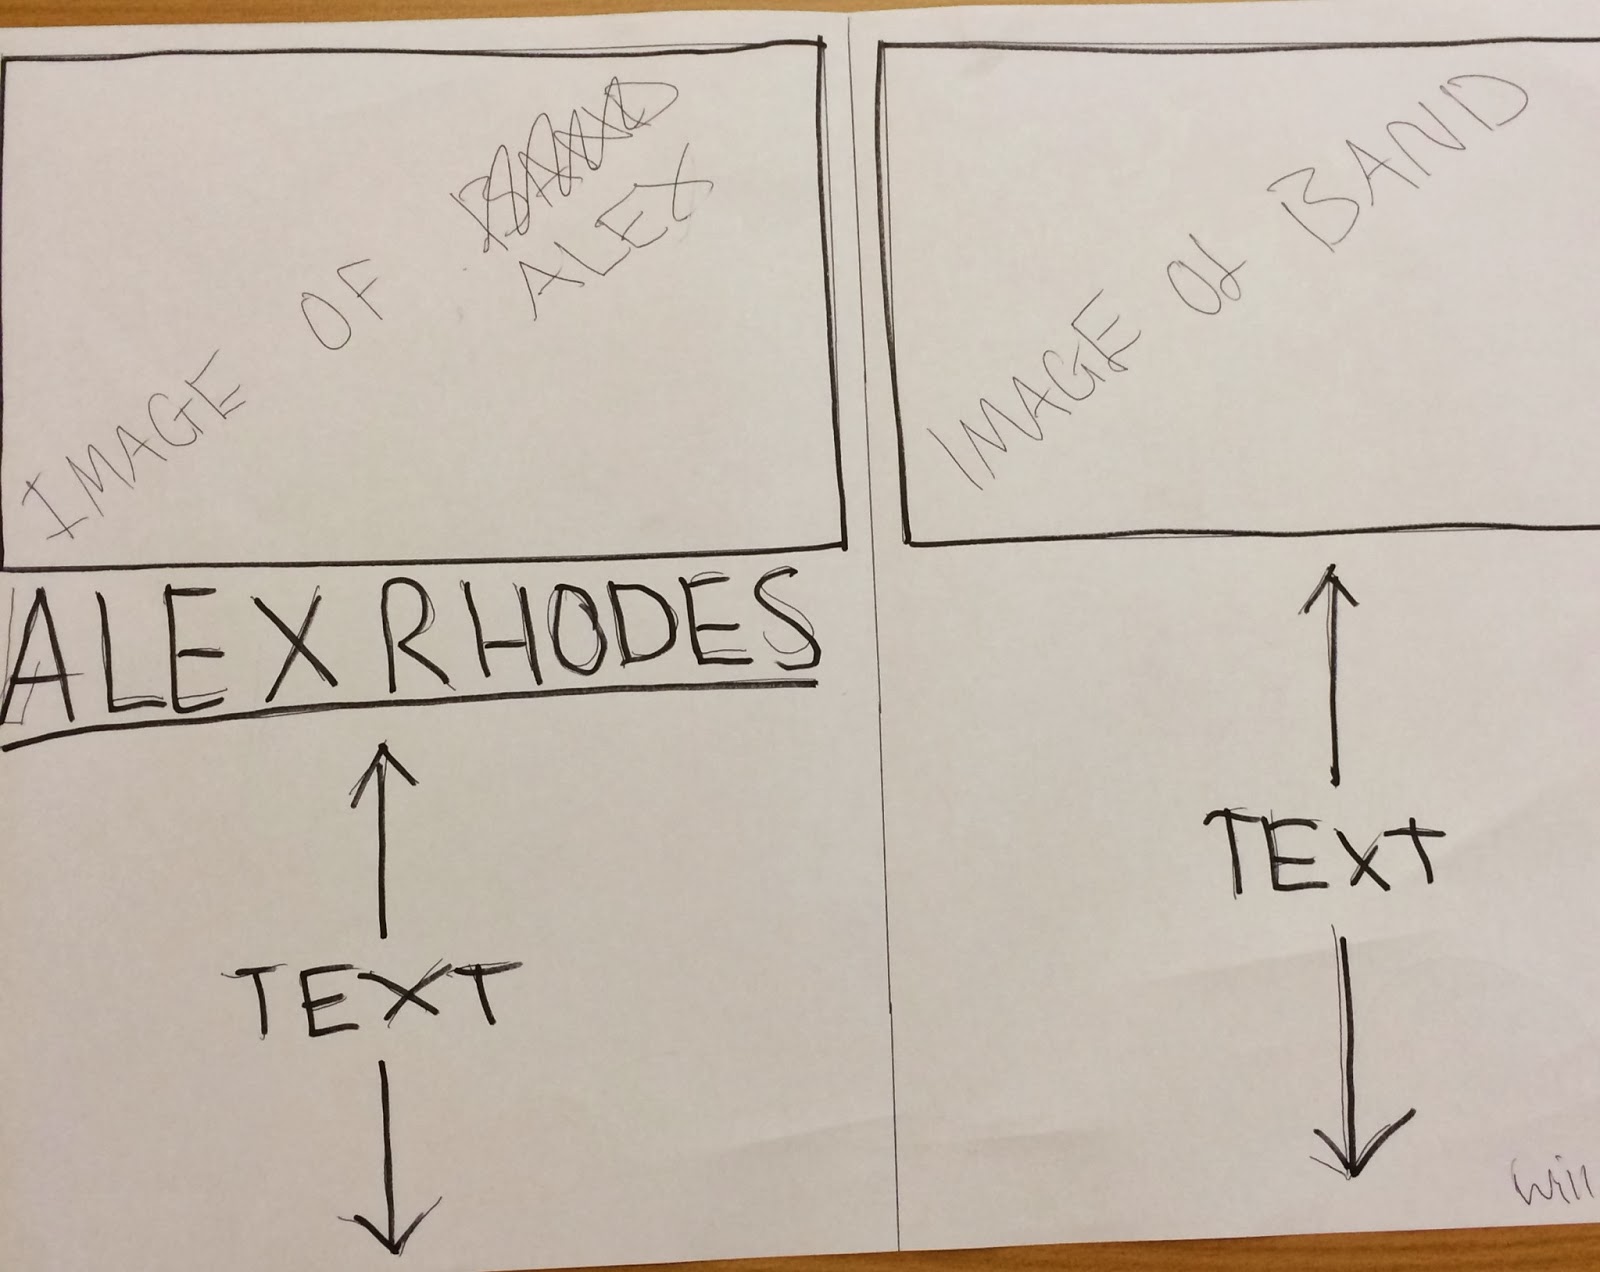 IMAGE OF BAND
ALEX
ALEX RHODES
TEXT
IMAGE of BAND
TEXT
Will